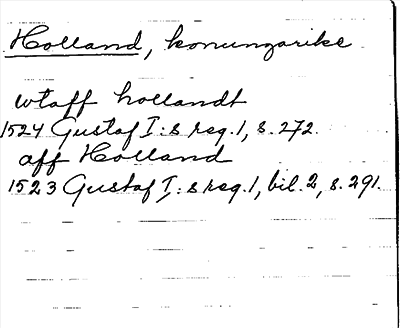 Holland, konungarike
wtaff hollandt
1524 Gustaf I:s reg. 1, s. 272.
aff Holland
1523 Gustaf I:s reg. 1, bil. 2, s. 291.